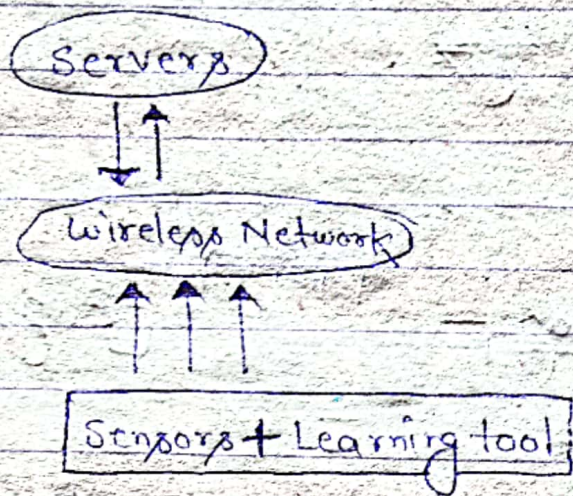 Servers
Wireless Network
Sensors + Learning tool